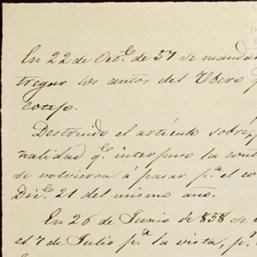 En 22 de Oct.e de 57 se mandó
tregar los autos del Obero
consejo.
Destruido el artículo sobre
nalidad q.e interpuso la con
se volvieron á pasar p.a el co
Dic.e 21 del mismo año.
En 26 de Junio de 858 se
el 7 de Julio p.a la vista, p.r